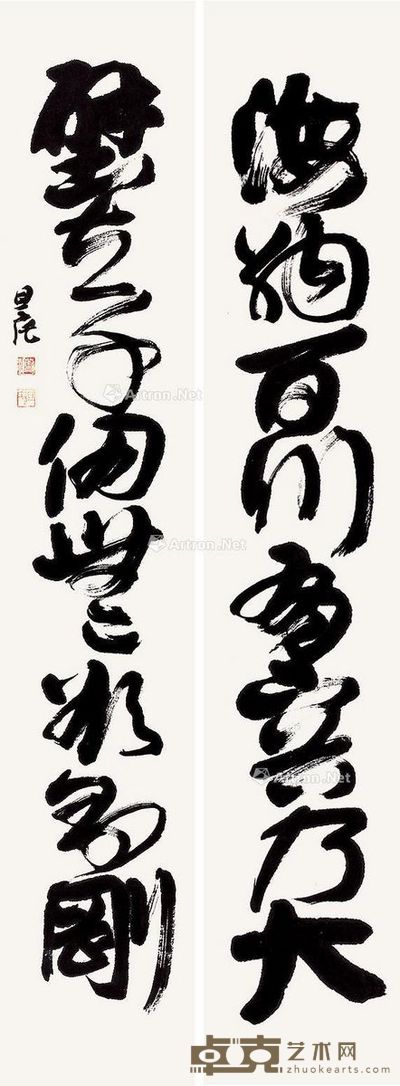 海納百川有容乃大
壁立千仞無欲則剛
Artron.Net
Artron.Net
Artron.Net
Artron.Net
卓克艺术网
zhuokearts.com